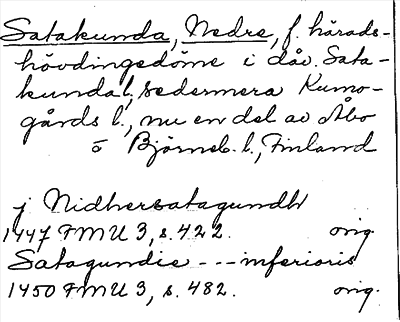 Satakunda, Nedre, f. härads-
hövdingedöme i dåv. Sata-
kunda l., sedermera Kumo-
gårds l., nu en del av Åbo
o Björneb. l., Finland
j Nidhersatagundh
1447 FMU 3, s. 422. orig.
Satagundie --- inferioris
1450 FMU 3, s. 482. orig.